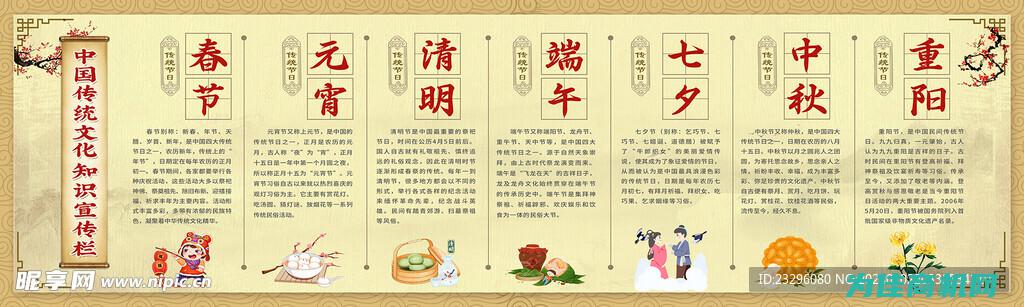 中国传统文化知识宣传栏
传统节日
春节
春节别称：新春、年节、天
腊、岁首、新年，是中国四大传统
节日之一，农历新年，传统上的“
年节”，日期定在每年农历的正月
初一。春节期间，各家都要举行各
种庆祝活动，这些活动大多以祭祀
神佛、祭奠祖先、除旧布新、迎禧接
福、祈求丰年为主要内容。活动形
式丰富多彩，多带有浓郁的民族特
色，凝聚着中华传统文化精华。
传统节日
元宵
元宵节又称上元节，是中国的
传统节日之一，正月是农历的元
月，古人称“夜”为“宵”，正月
十五日是一年中第一个月圆之夜，
所以称正月十五为“元宵节”。元
宵节习俗自古以来就以热烈喜庆的
观灯习俗为主。它主要有赏花灯、
吃汤圆、猜灯谜、放烟花等一系列
传统民俗活动。
传统节日
清明
清明节是中国最重要的祭祀
节日，时间在公历4月5日前后。
国人自古就有礼敬祖先、慎终追
远的礼俗观念，因此在清明时节
逐渐形成春祭的传统。每年一到
清明节，很多地方都会以不同的
形式，举行各式各样的纪念活动
来缅怀革命先辈，纪念战斗英
雄。民间有踏青郊游、扫墓祭祖
等风俗。
传统节日
端午
端午节又称端阳节、龙舟节、
重午节、天中节等，是中国四大
传统节日之一。源于自然天象崇
拜，由上古时代祭龙演变而来。
端午是“飞龙在天”的吉祥日子，
龙及龙舟文化始终贯穿在端午节
的传承历史中。端午节是集拜神
祭祖、祈福辟邪、欢庆娱乐和饮
食为一体的民俗大节。
传统节日
七夕
七夕节（别称：乞巧节、七
巧节、七姐诞、道德腊）被赋予
了“牛郎织女”的美丽爱情传
说，使其成为了象征爱情的节日，
从而被认为是中国最具浪漫色彩
的传统节日，日期是每年农历七
月初七，有拜月祈福、拜织女、吃
巧果、乞求姻缘等习俗。
传统节日
中秋
中秋节又称仲秋，是中国四大
传统节日之一，日期在农历的八月
十五日。中秋节以月之圆兆人之团
圆，为寄托思念故乡，思念亲人之
情，祈盼丰收、幸福，成为丰富多
彩、弥足珍贵的文化遗产。中秋节
自古便有祭月、赏月、吃月饼、玩
花灯、赏桂花、饮桂花酒等民俗，
流传至今，经久不息。
传统节日
重阳
重阳节，是中国民间传统节
日。九九归真，一元肇始，古人
认为九九重阳是吉祥的日子。古
时民间在重阳节有登高祈福、拜
神祭祖及饮宴祈寿等习俗。传承
至今，又添加了敬老等内涵。登
高赏秋与感恩敬老是当今重阳节
日活动的两大重要主题。2006年
5月20日，重阳节被国务院列入首
批国家级非物质文化遗产名录。
昵享网 www.nipic.cn
ID:23296080
为佳商讯网